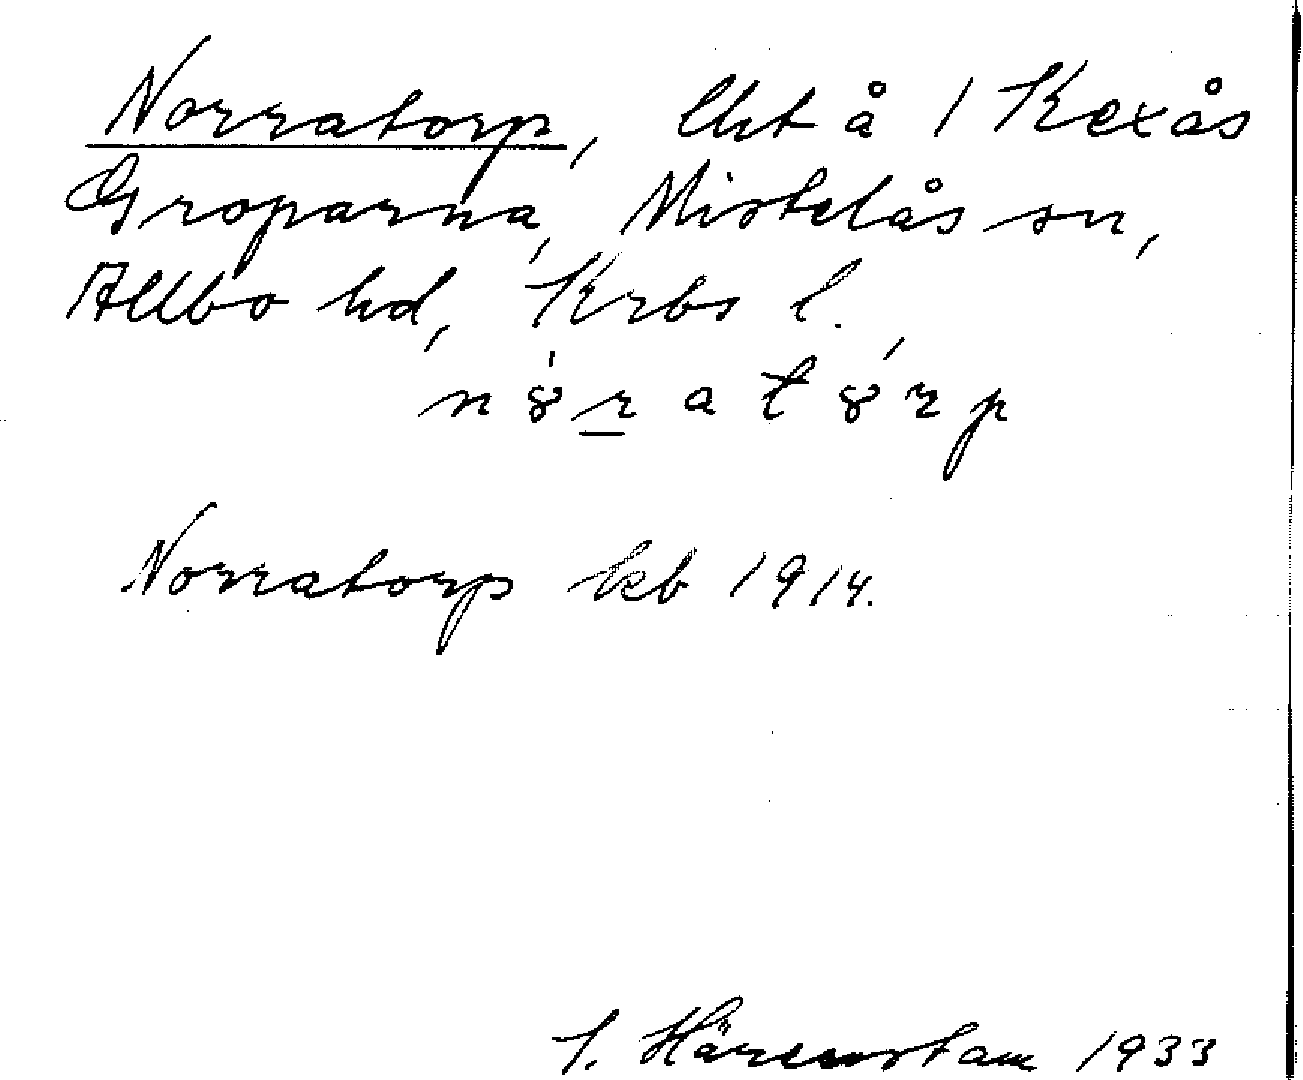 Norratorp, lht å 1 Kexås
Groparna, Mistelås sn,
Allbo hd, Krbs l.
n ȣ́ r̲ a t ȣ́ r p
Norratorp kb 1914.
S. Härenstam 1933